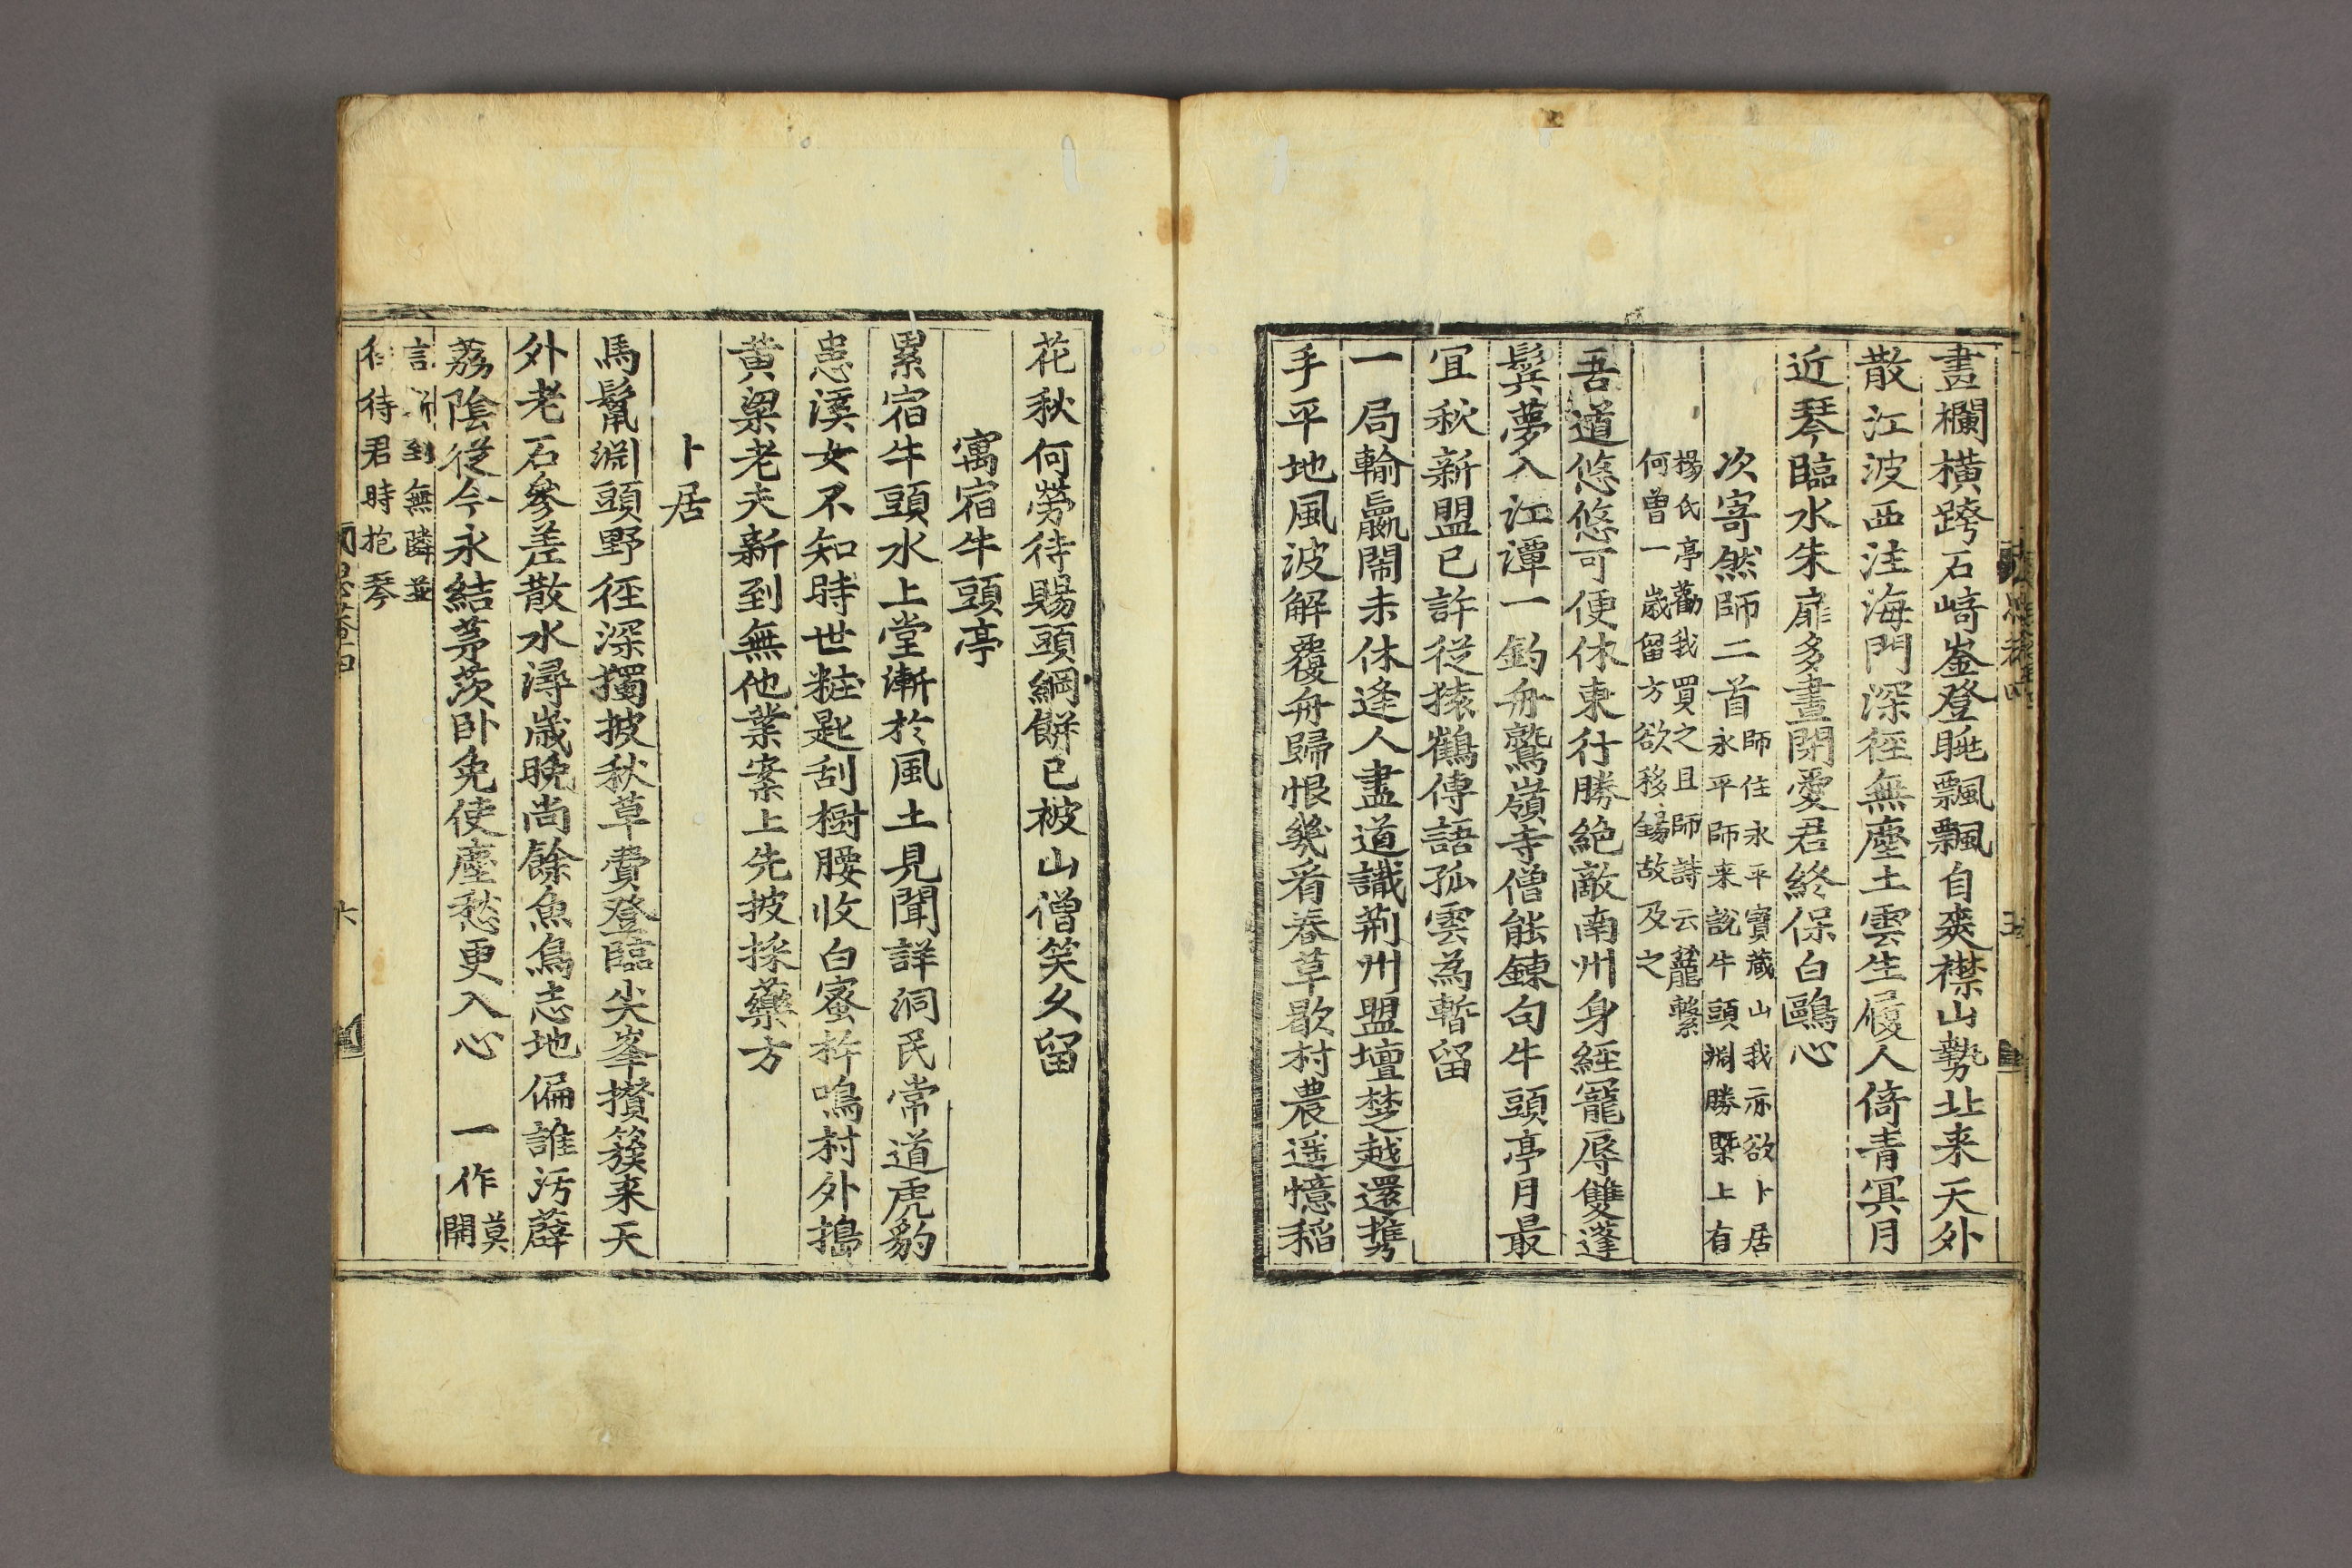 畵欄橫跨石﨑崟登眺飄飄自爽襟山勢北来天外
散江波西注海門深徑無塵土雲生屐人倚青冥月
近琴臨水朱扉多晝閉愛君終保白鷗心
次寄然師二首
師住永平寶蔵山我亦欲卜居
永平師来說牛頭淵勝槩上有
楊氏亭勸我買之且師詩云籠繫
何曽一歲留方欲移錫故及之
吾道悠悠可便休東行勝絶敵南州身經寵辱雙蓬
鬂夢入江潭一釣舟鷲嶺寺僧能鍊句牛頭亭月最
宜秋新盟已許從猿鶴傳語孤雲為暫留
一局輸嬴閙未休逢人盡道識荊州盟壇楚越還攜
手平地風波解覆舟歸恨幾看春草歇村農遥憶稻
花秋何勞待賜頭綱餅已被山僧笑久留
寓宿牛頭亭
累宿牛頭水上堂漸於風土見聞詳洞民常道虎豹
患溪女不知時世粧匙刮樹腰收白蜜杵鳴村外搗
黄粱老夫新到無他業案上先披採藥方
卜居
馬鬣淵頭野徑深獨披秋草費登臨尖峯攅簇来天
外老石參差散水潯歲晚尚餘魚鳥志地偏誰汚薜
荔陰從今永結茅茨卧免使塵愁更入心 一作莫
開
言新到無隣並
待君時抱琴
六